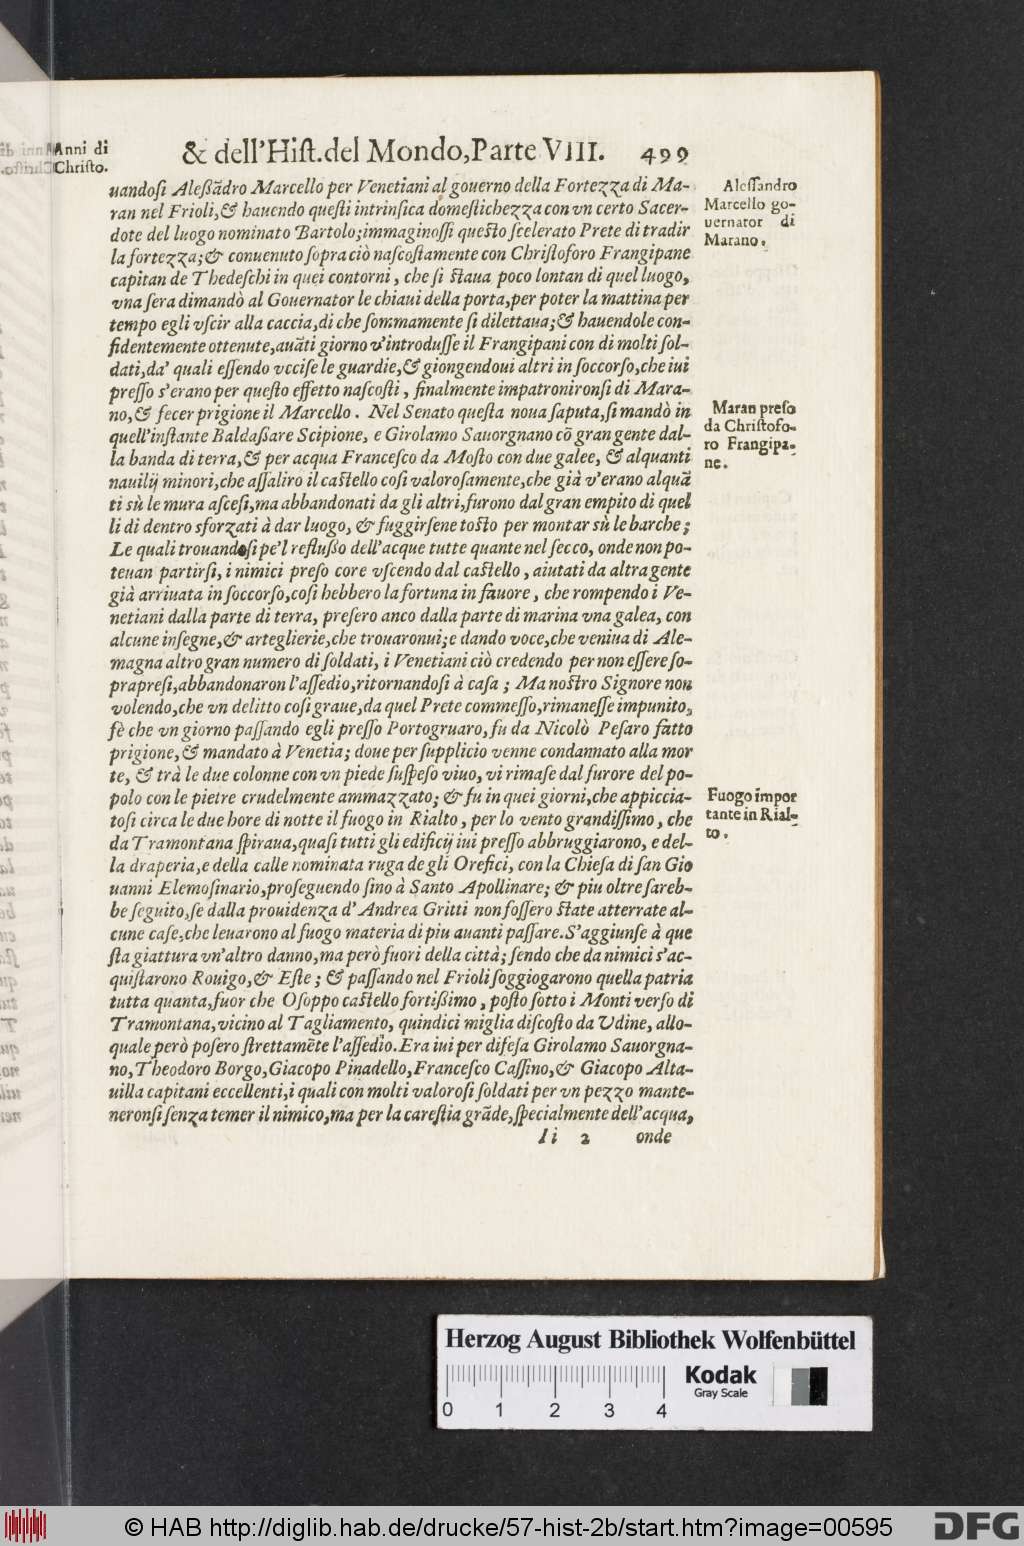 Anni di
Christo.
& dell'Hist. del Mondo, Parte VIII. 499
uandosi Aleßãdro Marcello per Venetiani al gouerno della Fortezza di Ma-
ran nel Frioli, & hauendo questi intrinsica domestichezza con vn certo Sacer-
dote del luogo nominato Bartolo; immaginossi questo scelerato Prete di tradir
la fortezza; & conuenuto sopra ciò nascostamente con Christoforo Frangipane
capitan de Thedeschi in quei contorni, che si staua poco lontan di quel luogo,
vna sera dimandò al Gouernator le chiaui della porta, per poter la mattina per
tempo egli vscir alla caccia, di che sommamente si dilettaua; & hauendole con-
fidentemente ottenute, auãti giorno v'introdusse il Frangipani con di molti sol-
dati, da' quali essendo vccise le guardie, & giongendoui altri in soccorso, che iui
presso s'erano per questo effetto nascosti, finalmente impatronironsi di Mara-
no, & fecer prigione il Marcello. Nel Senato questa noua saputa, si mandò in
quell'instante Baldaßare Scipione, e Girolamo Sauorgnano cõ gran gente dal-
la banda di terra, & per acqua Francesco da Mosto con due galee, & alquanti
nauilij minori, che assaliro il castello cosi valorosamente, che già v'erano alquã
ti sù le mura ascesi, ma abbandonati da gli altri, furono dal gran empito di quel
li di dentro sforzati à dar luogo, & fuggirsene tosto per montar sù le barche;
Le quali trouandosi pe'l reflußo dell'acque tutte quante nel secco, onde non po-
teuan partirsi, i nimici preso core vscendo dal castello, aiutati da altra gente
già arriuata in soccorso, cosi hebbero la fortuna in fauore, che rompendo i Ve-
netiani dalla parte di terra, presero anco dalla parte di marina vna galea, con
alcune insegne, & arteglierie, che trouaronui; e dando voce, che veniua di Ale-
magna altro gran numero di soldati, i Venetiani ciò credendo per non essere so-
prapresi, abbandonaron l'assedio, ritornandosi à casa; Ma nostro Signore non
volendo, che vn delitto cosi graue, da quel Prete commesso, rimanesse impunito,
fè che vn giorno passando egli presso Portogruaro, fu da Nicolò Pesaro fatto
prigione, & mandato à Venetia; doue per supplicio venne condannato alla mor
te, & trà le due colonne con vn piede suspeso viuo, vi rimase dal furore del po-
polo con le pietre crudelmente ammazzato; & fu in quei giorni, che appiccia-
tosi circa le due hore di notte il fuogo in Rialto, per lo vento grandissimo, che
da Tramontana spiraua, quasi tutti gli edificij iui presso abbruggiarono, e del-
la draperia, e della calle nominata ruga de gli Orefici, con la Chiesa di san Gio
uanni Elemosinario, proseguendo sino à Santo Apollinare; & piu oltre sareb-
be seguito, se dalla prouidenza d'Andrea Gritti non fossero state atterrate al-
cune case, che leuarono al fuogo materia di piu auanti passare. S'aggiunse à que
sta giattura vn'altro danno, ma però fuori della città; sendo che da nimici s'ac-
quistarono Rouigo, & Este; & passando nel Frioli soggiogarono quella patria
tutta quanta, fuor che Osoppo castello fortißimo, posto sotto i Monti verso di
Tramontana, vicino al Tagliamento, quindici miglia discosto da Vdine, allo-
quale però posero strettamẽte l'assedio. Era iui per difesa Girolamo Sauorgna-
no, Theodoro Borgo, Giacopo Pinadello, Francesco Cassino, & Giacopo Alta-
uilla capitani eccellenti, i quali con molti valorosi soldati per vn pezzo mante-
neronsi senza temer il nimico, ma per la carestia grãde, specialmente dell'acqua,
Ii 2 onde
Alessandro
Marcello go-
uernator di
Marano.
Maran preso
da Christofo-
ro Frangipa-
ne.
Fuogo impor
tante in Rial-
to.
Herzog August Bibliothek Wolfenbüttel
Kodak
Gray Scale
0 1 2 3 4
© HAB http://diglib.hab.de/drucke/57-hist-2b/start.htm?image=00595
DFG